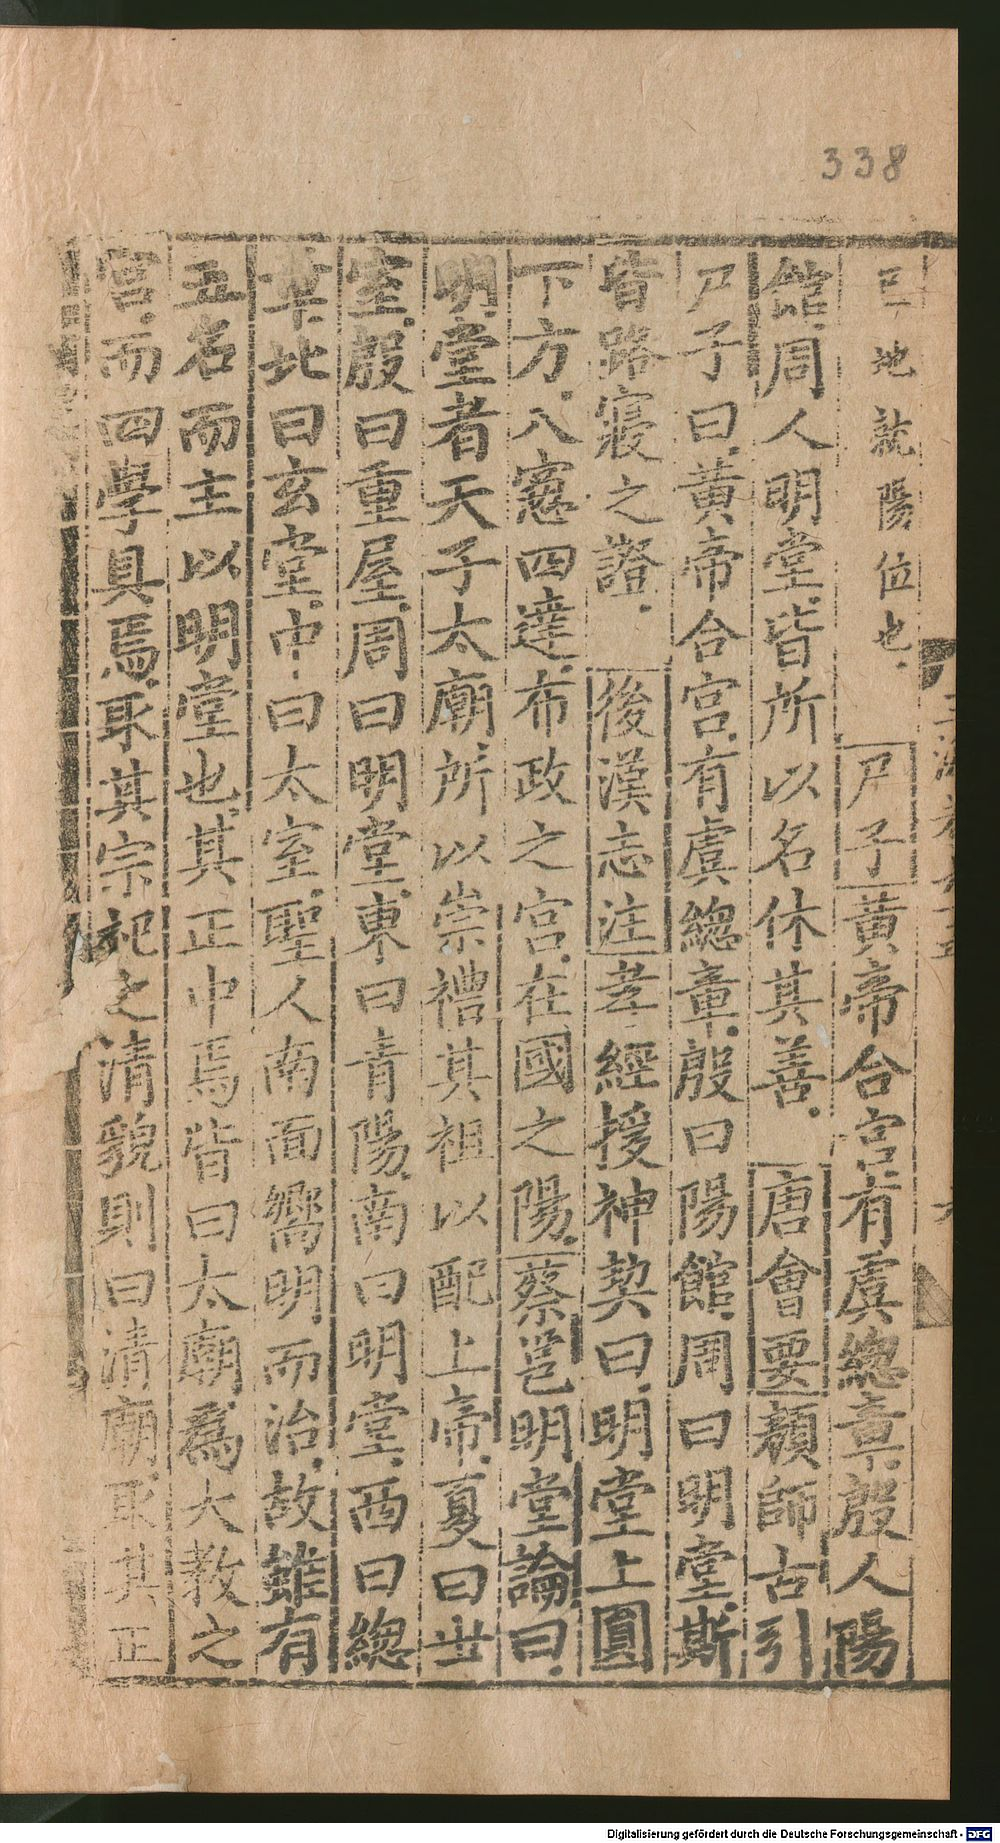 338
巳地就陽位也尸子黃帝合宮有虞總章殷人陽
館周人明堂皆所以名休其善唐會要顏師古引
尸子曰黃帝合宮有虞總章殷曰陽館周曰明堂斯
皆路寢之證後漢志注孝經援神契曰明堂上圓
下方八窻四達布政之宮在國之陽蔡邕明堂論曰
明堂者天子太廟所以崇禮其祖以配上帝夏曰世
室殷曰重屋周曰明堂東曰青陽南曰明堂西曰總
章北曰玄堂中曰太室聖人南面嚮明而治故雖有
五名而主以明堂也其正中焉皆曰太廟爲大教之
宮而四學具焉取其宗祀之清貌則曰清廟取其正
Digitalisierung gefördert durch die Deutsche Forschungsgemeinschaft - DFG